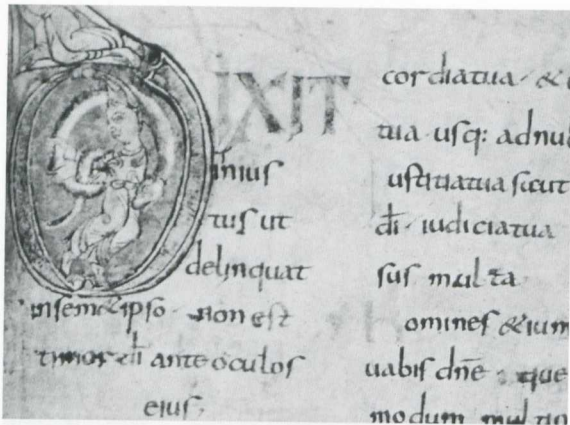 DIXIT
inius
tus ut
delinquat
insemetipso · non est
timor di ante oculos
eius.
cordiatua · &
tua · usq: adnu
ustitiatua sicut
di · iudiciatua
sus multa
omines & ium
uabis dne · que
modum mul